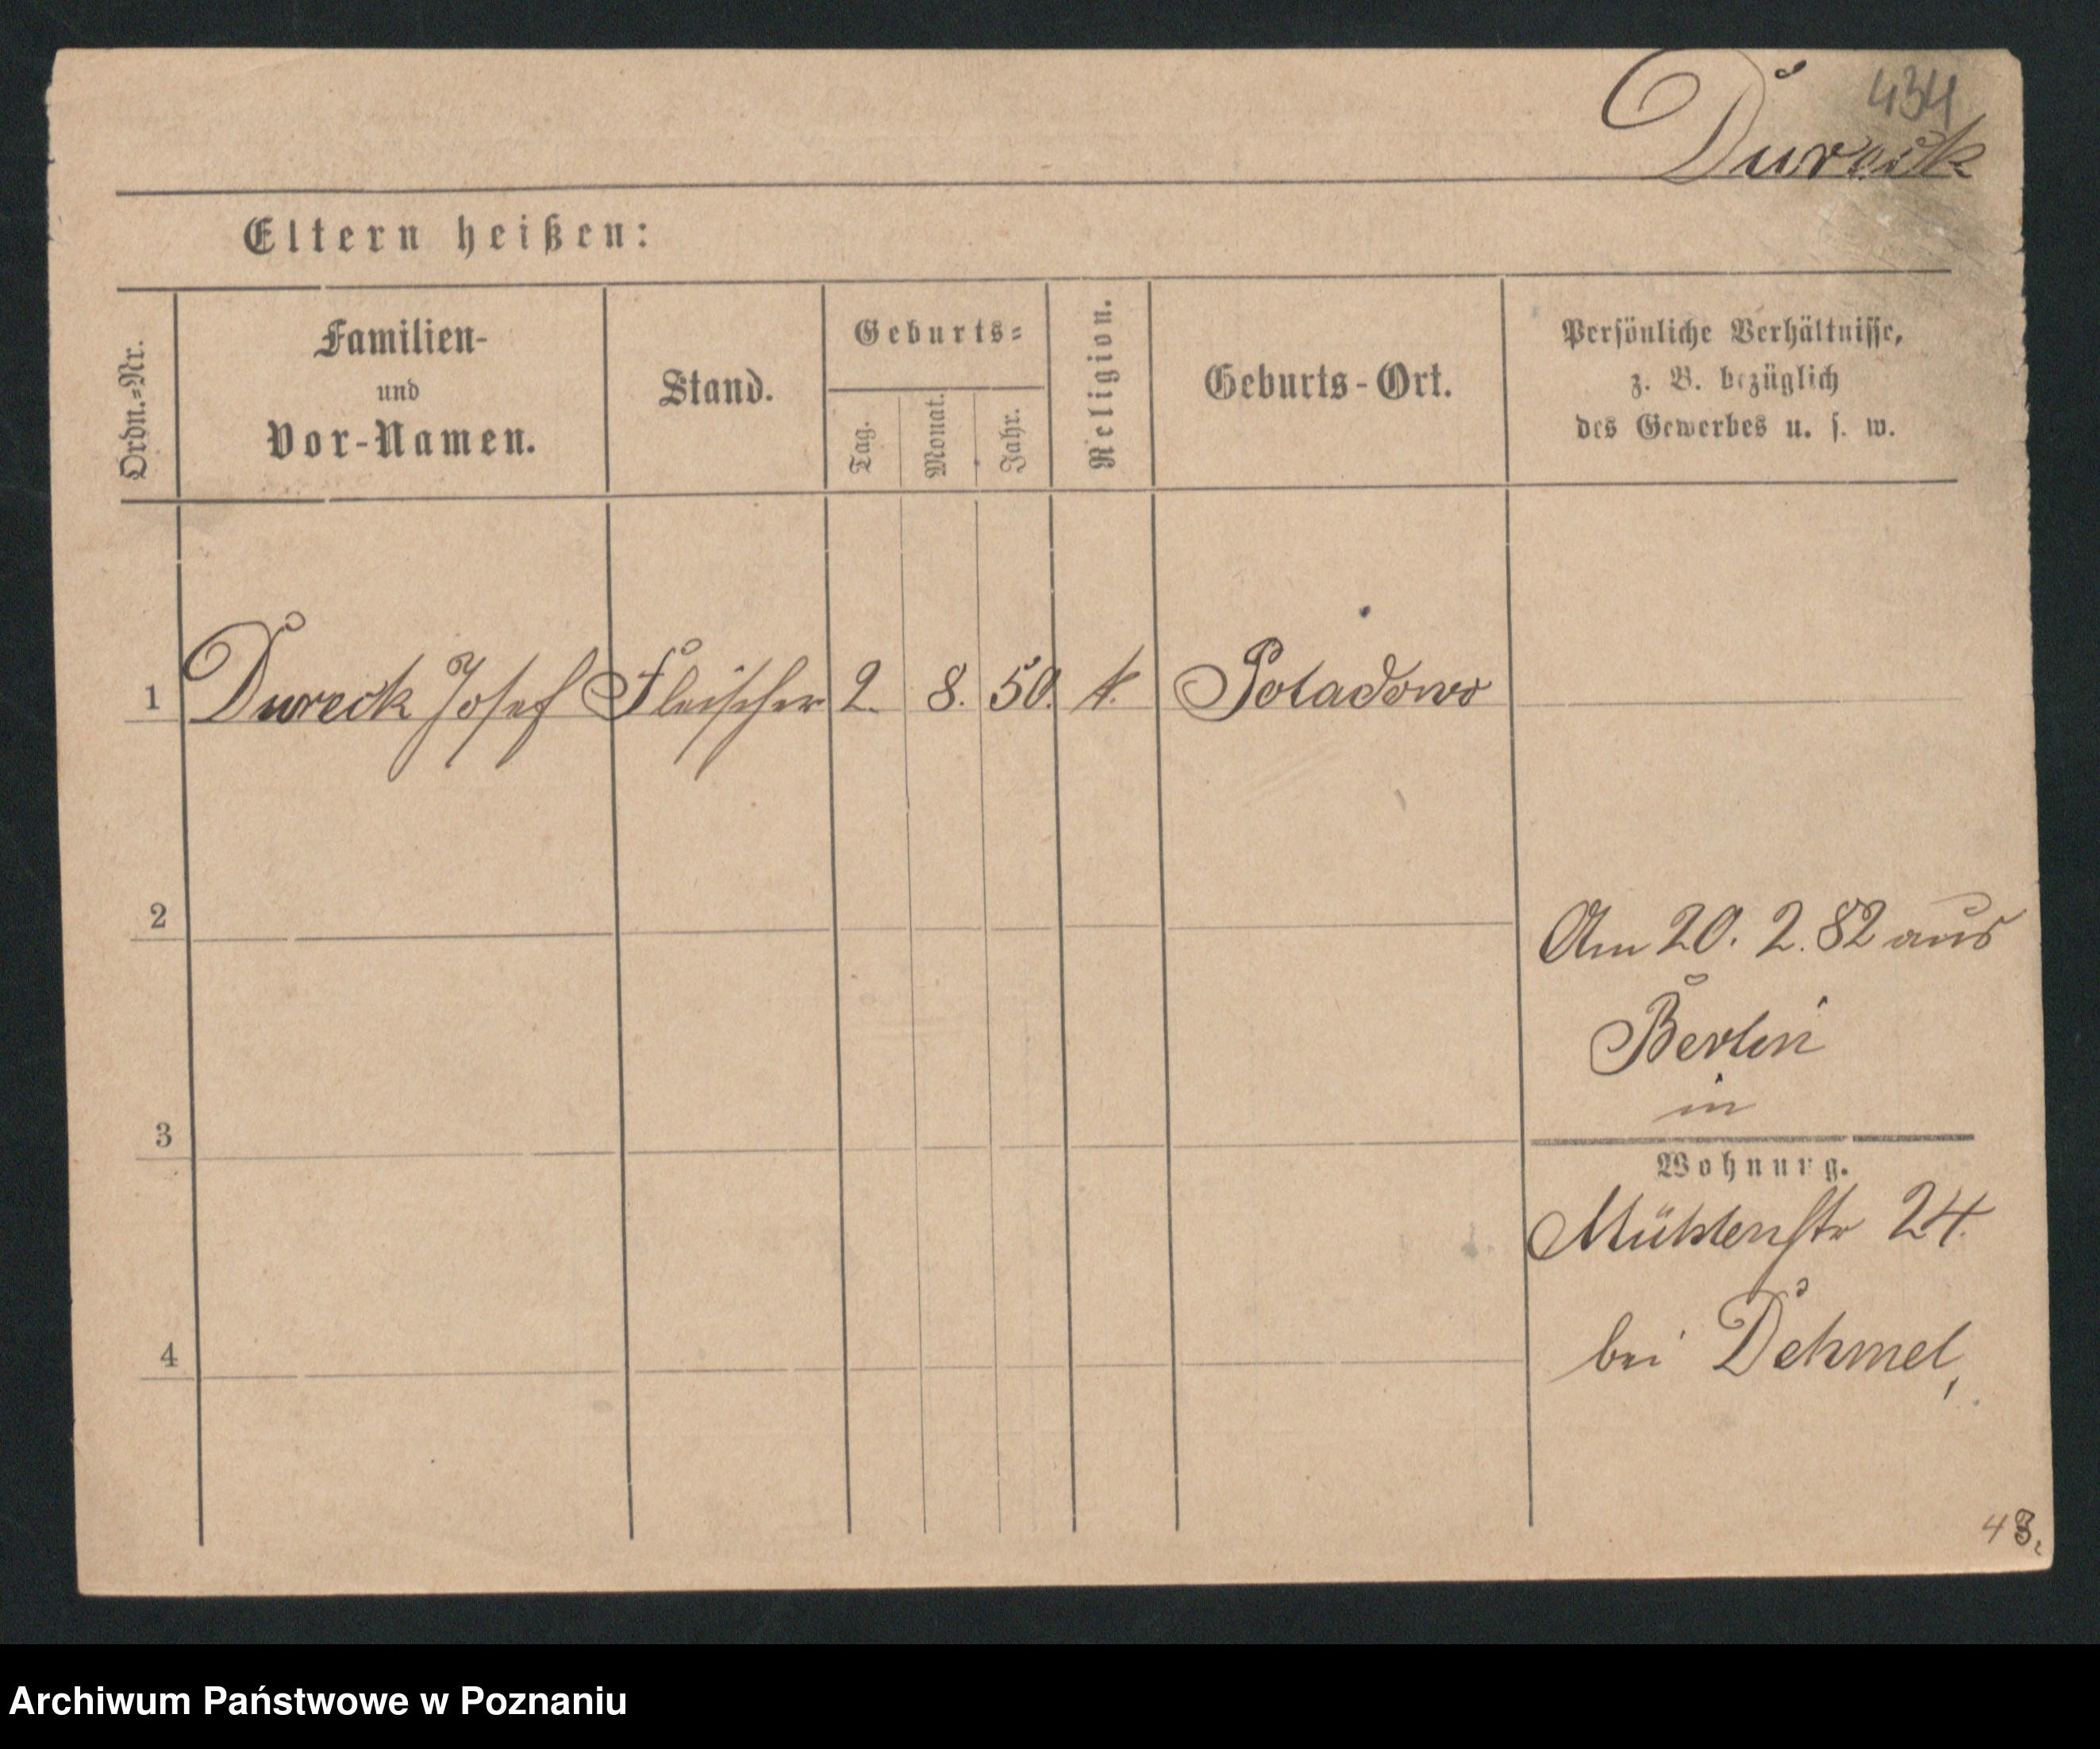 434
Dureck
Eltern heißen:
Ordn.=Nr.
Familien-
und
Vor-Namen.
Stand.
Geburts=
Tag.
Monat.
Jahr.
Religion.
Geburts-Ort.
Persönliche Verhältnisse,
z. B. bezüglich
des Gewerbes u. s. w.
1 Dureck Josef Fleischer 2. 8. 50. k.
2
Am 20. 2. 82 aus
Berlin
in
3
Wohnung.
Mühlenstr 24.
bei Dehmel,
4
43.
Archiwum Państwowe w Poznaniu